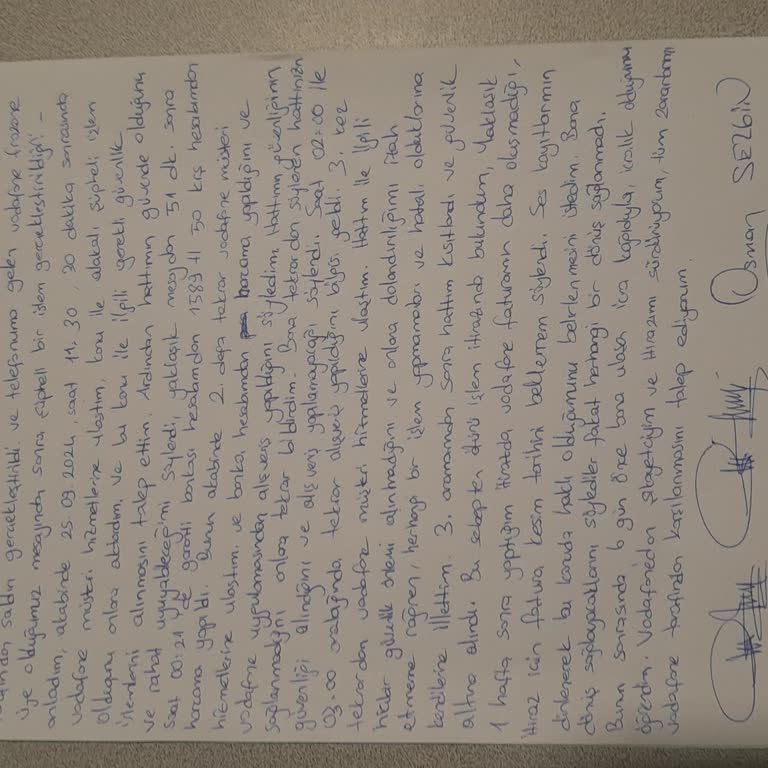 saldırı gerçekleştirildi. ve telefonuma gelen vodafone frazone
üye olduğumuz mesajında sonra şüpheli bir işlem gerçekleştirildiği -
anladım, akabinde 25.09.2024, saat 11:30, 30 dakika sonrasında
vodafone müşteri hizmetlerine ulaştım, konu ile alakalı şüpheli işlem
olduğunu onlara aktardım, ve bu konu ile ilgili gerekli güvenlik
işlemlerini alınmasını talep ettim. Ardından hattımın güvende olduğunu
ve rahat uyuyabileceğimi söyledi, yaklaşık mesajdan 51 dk. sonra
saat 00:21 de garanti bankası hesabımdan 1583 tl 50 krş hesabımdan
harcama yapıldı. Bunun akabinde 2. defa tekrar vodafone müşteri
hizmetlerine ulaştım. ve banka, hesabımdan harcama yapıldığını ve
vodafone uygulamasından alışveriş yapıldığını söyledim, Hattımın güvenliğimin
sağlanmadığını onlara tekrar bildirdim. Bana tekrardan söylenen hattınızın
güvenliği alındığını ve alış veriş yapılamayacağı söylendi. Saat 02:00 ile
03:00 aralığında tekrar alışveriş yapıldığını bilgisi geldi. 3. kez
tekrardan vodafone müşteri hizmetlerine ulaştım. Hattım ile ilgili
hiçbir güvenlik önlemi alınmadığını ve onlara dolandırıldığımı izah
etmeme rağmen, herhangi bir işlem yapmamaları ve hatalı olduklarına
kendilerine ilettim. 3. aramamdan sonra hattım kısıtlandı ve güvenlik
altına alındı. Bu sebepten ötürü işlem itirazında bulundum, Yaklaşık
1 hafta sonra yaptığım itirazda vodafone faturamın daha oluşmadığı,
itiraz için fatura, kesim tarihini beklemem söylendi. Ses kayıtlarımın
dinlenerek bu konuda haklı olduğumunu belirlenmesini istedim. Bana
dönüş sağlayacaklarını söylediler fakat herhangi bir dönüş sağlanmadı.
Bunun sonrasında 6 gün önce bana ulaşan icra kağıdıyla, icralık olduğumu
öğrendim. Vodafone'den şikayetçiyim ve itirazımı sürdürüyorum, tüm zararlarımın
vodafone tarafından karşılanmasını talep ediyorum.
Osman SEZGİN